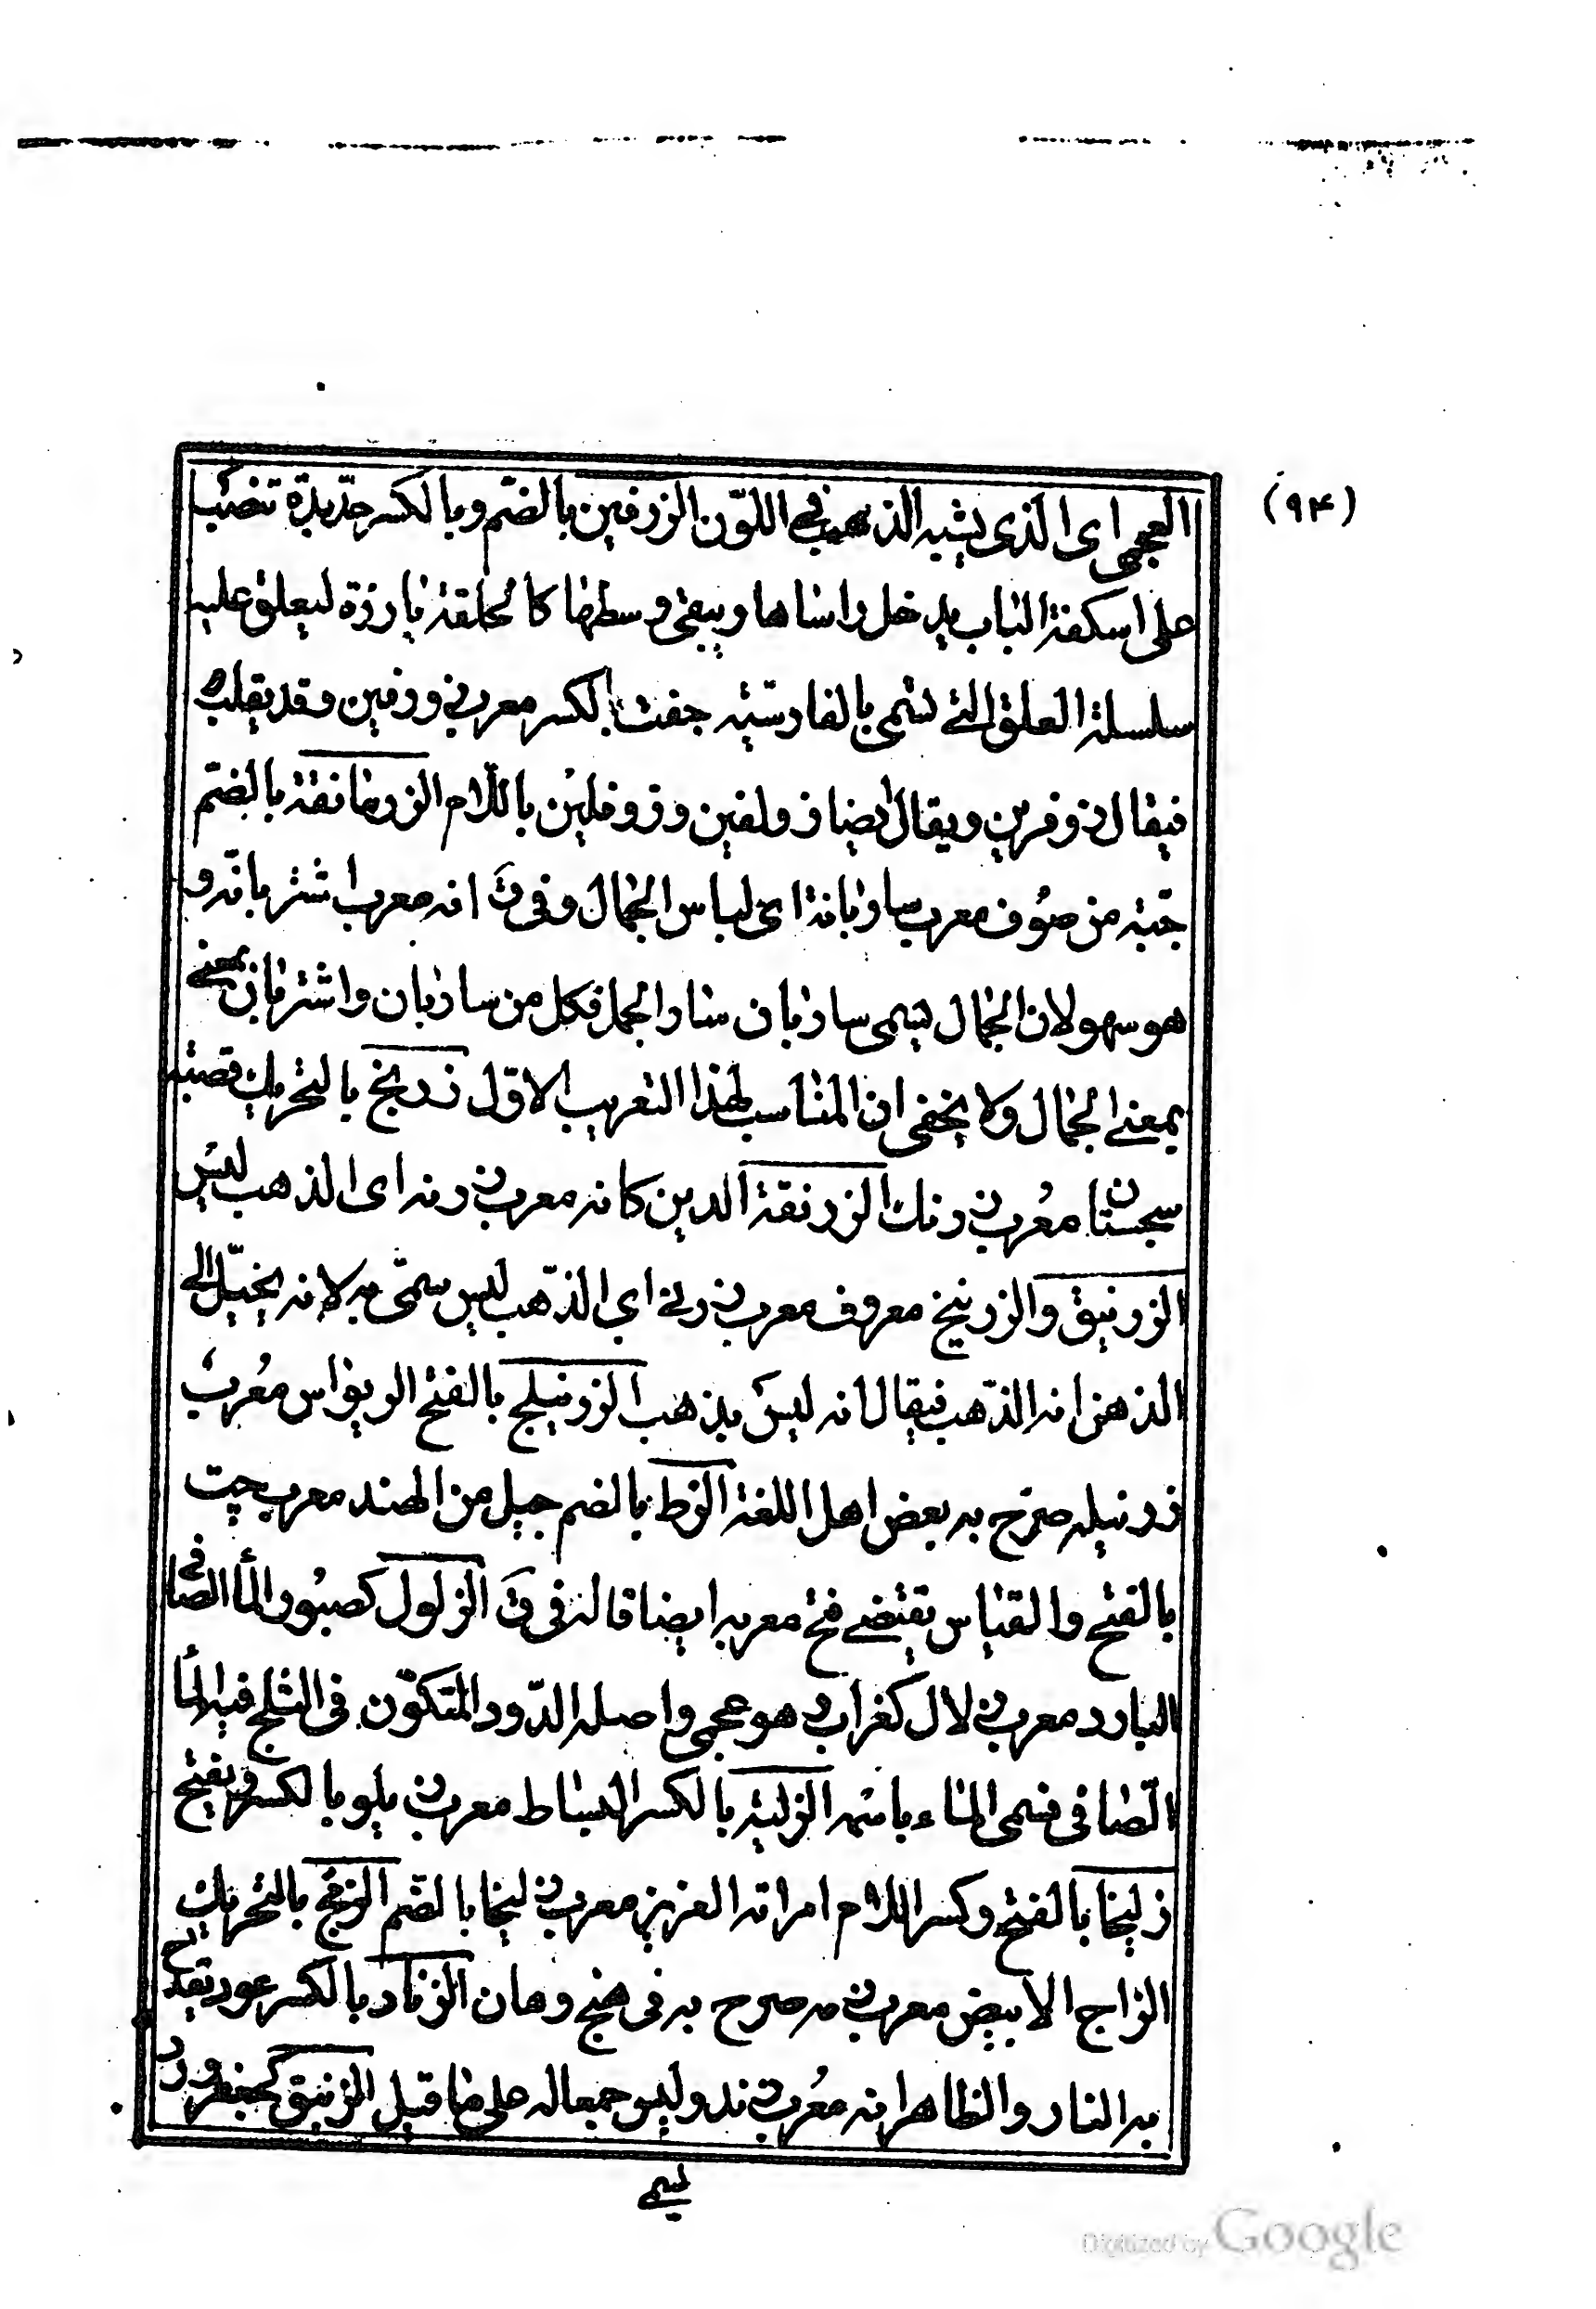 (۹۴)
العجمى اى الذى يشبه الذهب فى اللوّن الزرفين بالضّم وبالكسر حدّيدة تنصب
على اسكفة الباب يدخل راساها ويبقى وسطها كالحلقة بارزة ليعلق عليه
سلسلة العلق التى تسمى بالفارسيّه جفت بالكسر معرب زورفين وقد يقلب
فيقال زوفرين ويقال ايضا زولفين وزوفلين باللّام الزرمانقة بالضمّ
جبّة من صوف معرب ساربانة اى لباس الجمال وفى ق انه معرب اشتربانه و
هو سهو لان الجمال يسمى ساربان سار الجمل فكل من ساربان واشتربان بمعنى
بمعنى الجمال ولا يخفى ان المناسب لهذا التعريب الاوّل زرنج بالتحريك قصبة
سجستان معرب زرنك الزرنقة الدين كانه معرب زرنه اى الذهب ليس
الزرنيق والزرنيخ معروف معرب زرنى اى الذّهب ليس سمّى به لانه يخيّل الى
الذهن انه الذّهب فيقال انه ليس بذهب الزرنيلج بالفتح الريواس معرب
زرنيله صرّح به بعض اهل اللغة الزط بالضم جيل من الهند معرب جت
بالفتح والقياس يقتضى فتح معربه ايضا قاله فى ق الزلول كصبور الماء الصافى
البارد معرب زلال كغراب وهو عجمى واصله الدّود المتكوّن فى الثلج فيه الماء
الصّافى فسمى الماء باسمه الزلية بالكسر البساط معرب زيلو بالكسر ويفتح
زليخا بالفتح وكسر اللام امراته العزيز معرب زليخا بالضّم الزمج بالتحريك
الزاج الابيض معرب زمه صرح به فى هنج وهان الزناد بالكسر عود يقدح
به النار والظاهر انه معرب زند وليس جمعا له على ما قيل الزنبق كجعفر ورد
يسمى
Digitized by Google